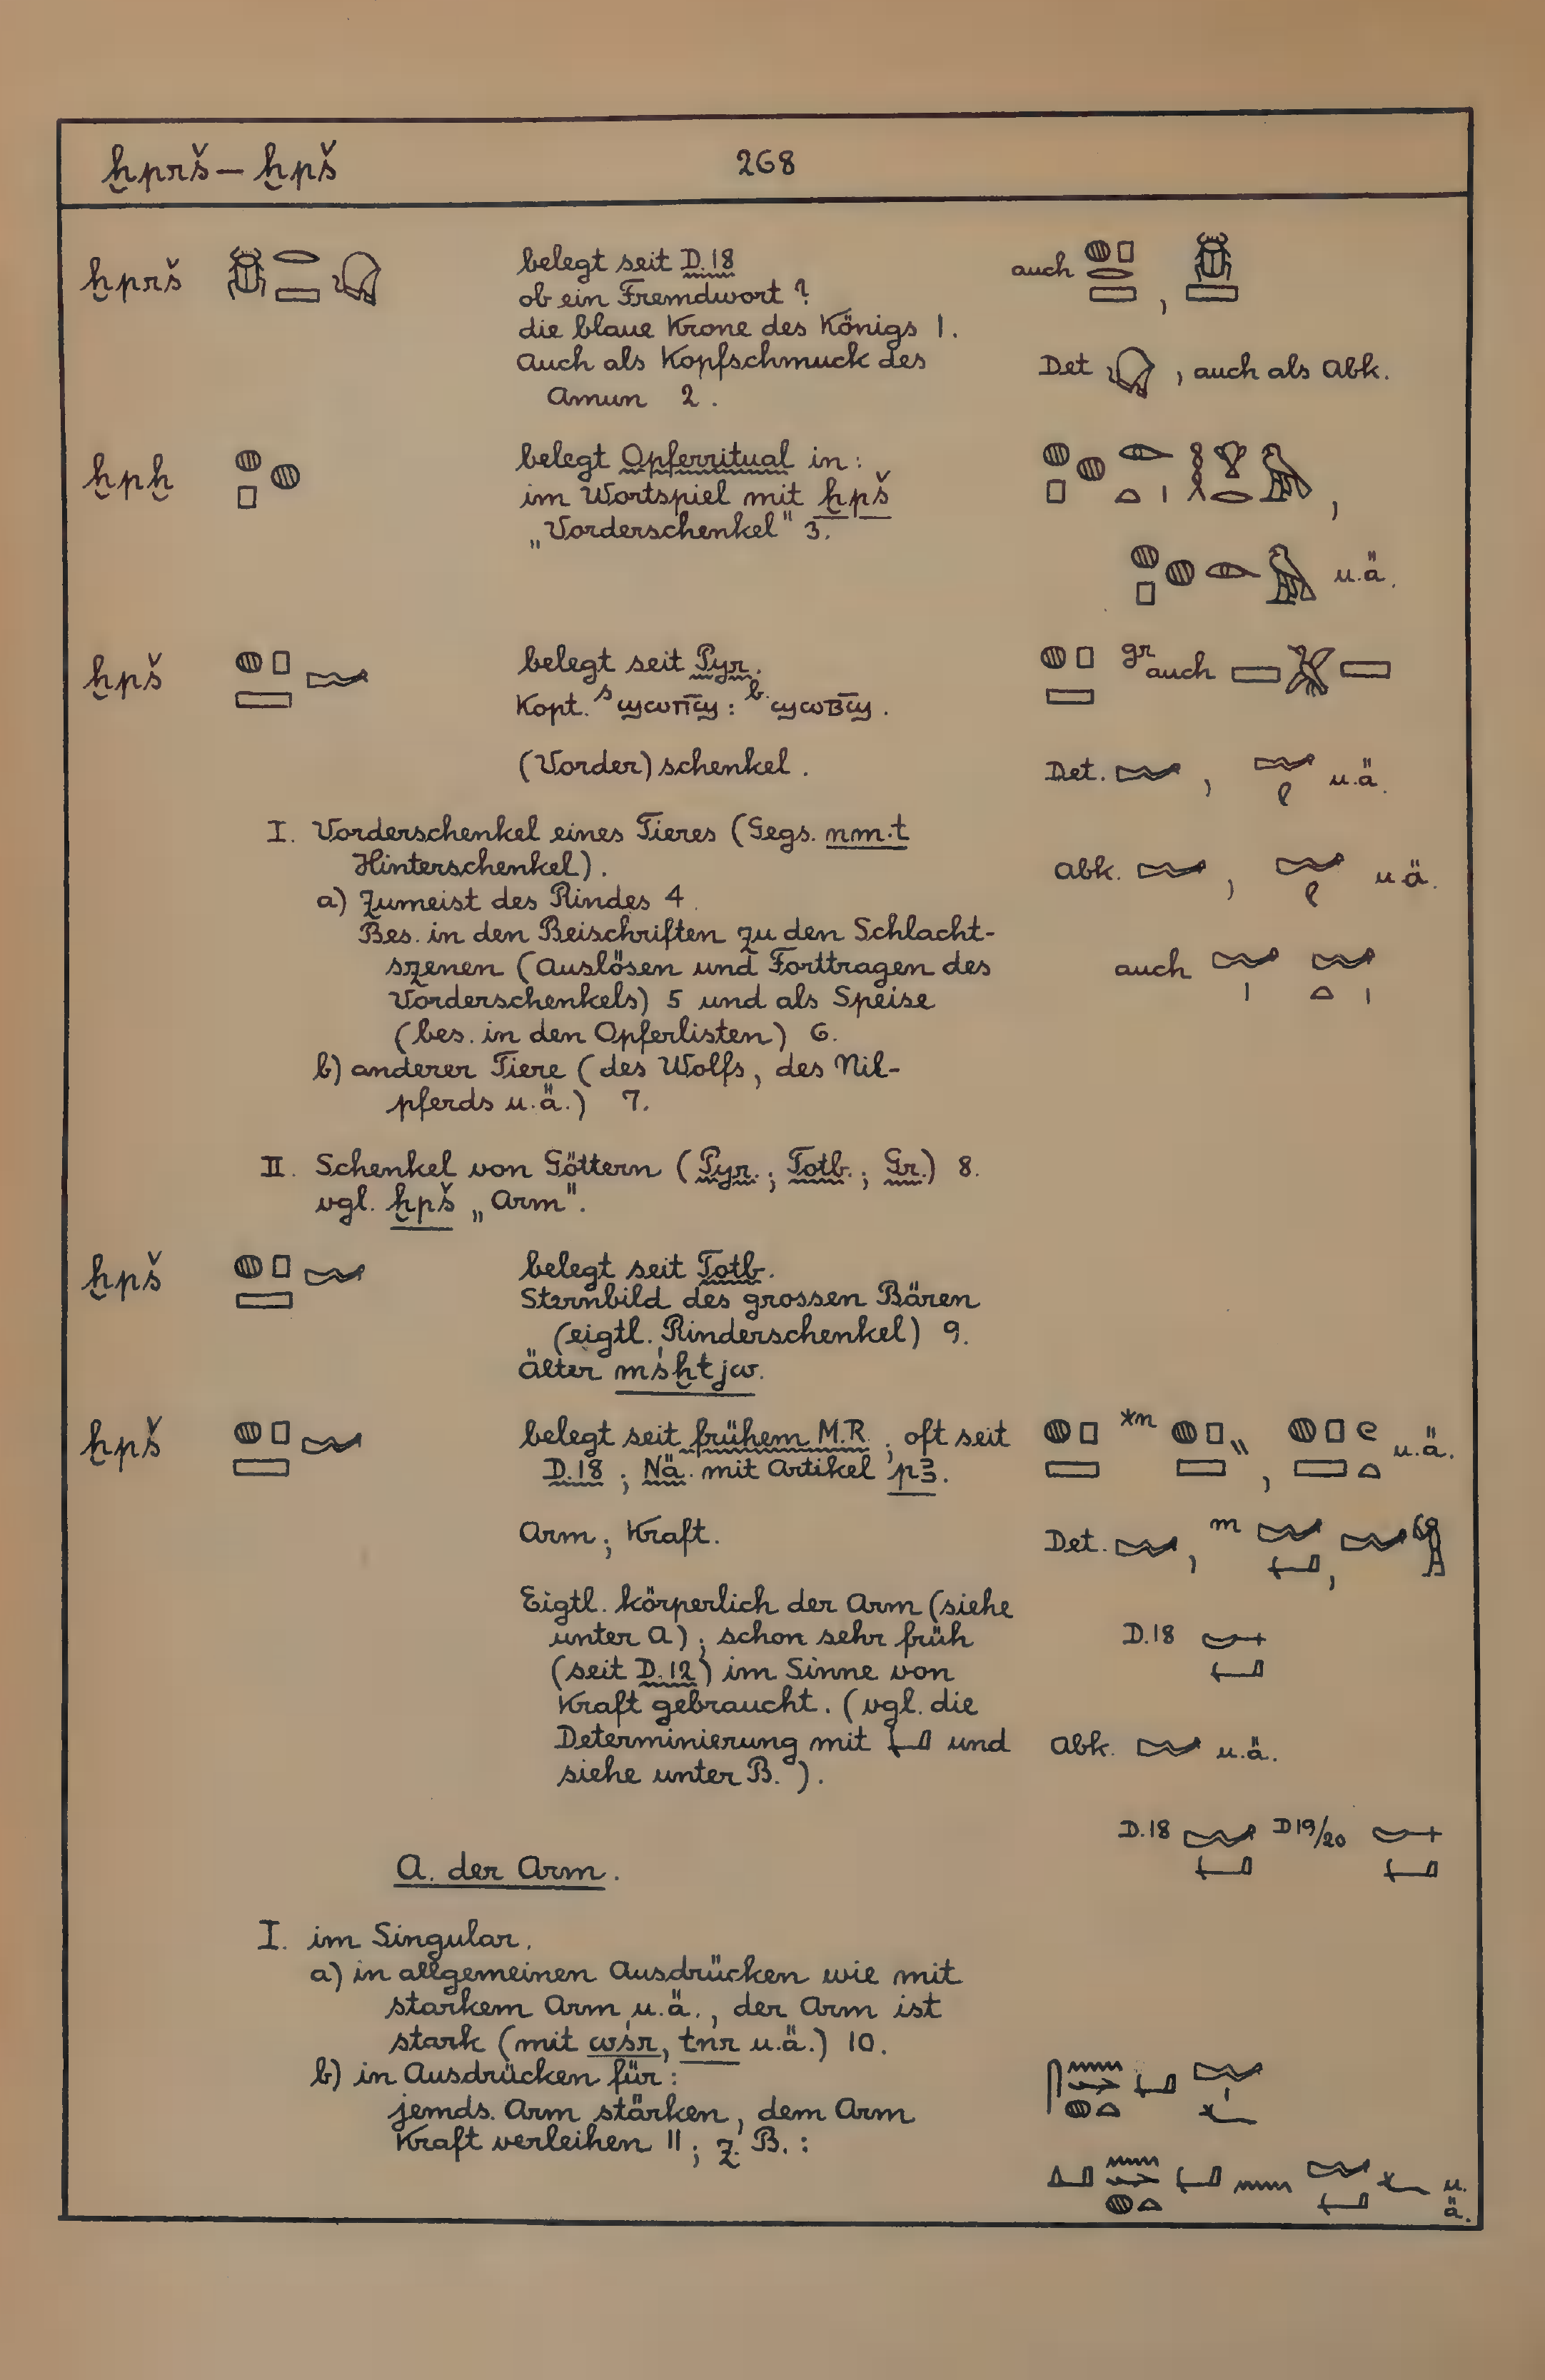 ḫprš – ḫpš 268
ḫprš
belegt seit D.18
ob ein Fremdwort?
die blaue Krone des Königs 1.
Auch als Kopfschmuck des
Amun 2.
auch ,
Det , auch als Abk.
ḫpḫ
belegt Opferritual in:
im Wortspiel mit ḫpš
„Vorderschenkel" 3.
,
u.ä.
ḫpš
belegt seit Pyr.
Kopt. s ϣⲱⲡ̅ϣ : b. ϣⲱⲃ̅ϣ.
gr auch
(Vorder)schenkel.
Det. , u.ä.
I. Vorderschenkel eines Tieres (Gegs. nm.t
Hinterschenkel).
Abk. , u.ä.
a) Zumeist des Rindes 4.
Bes. in den Beischriften zu den Schlacht-
szenen (Auslösen und Forttragen des
auch
Vorderschenkels) 5 und als Speise
(bes. in den Opferlisten) 6.
b) anderer Tiere (des Wolfs, des Nil-
pferds u.ä.) 7.
II. Schenkel von Göttern (Pyr.; Totb.; Gr.) 8.
vgl. ḫpš „Arm".
ḫpš
belegt seit Totb.
Sternbild des grossen Bären
(eigtl. Rinderschenkel) 9.
älter mśḫtjw.
ḫpš
belegt seit frühem M.R.; oft seit
D.18; Nä. mit Artikel pꜣ.
*m , u.ä.
Arm; Kraft.
Det. , m ,
Eigtl. körperlich der Arm (siehe
unter A); schon sehr früh
D.18
(seit D.12) im Sinne von
Kraft gebraucht. (vgl. die
Determinierung mit 𓂡 und
Abk. u.ä.
siehe unter B.).
D.18 D19/20
A. der Arm.
I. im Singular.
a) in allgemeinen Ausdrücken wie mit
starkem Arm u.ä., der Arm ist
stark (mit wśr, tnr u.ä.) 10.
b) in Ausdrücken für:
jemds. Arm stärken, dem Arm
Kraft verleihen 11; z.B.:
u.ä.